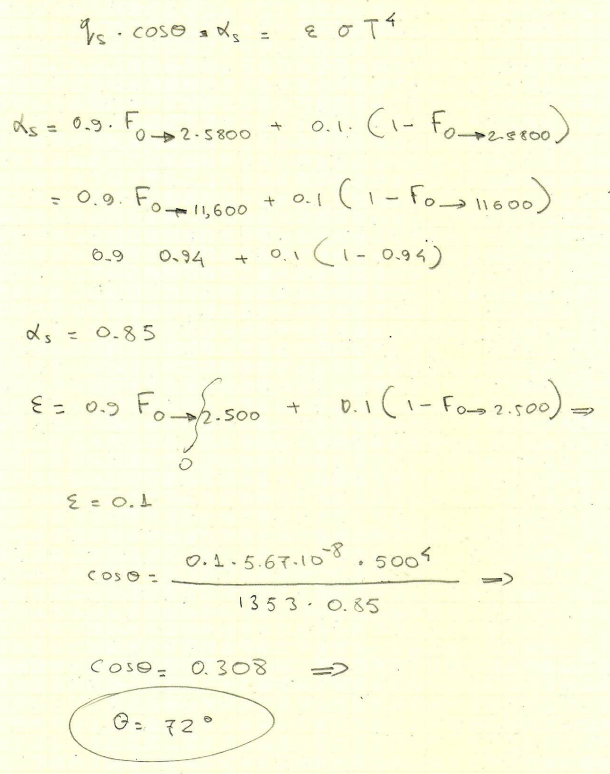 q_s · cosθ · α_s = ε σ T⁴
α_s = 0.9 · F₀→2·5800 + 0.1 · (1 - F₀→2·5800)
= 0.9 · F₀→11,600 + 0.1 (1 - F₀→11600)
0.9 0.94 + 0.1 (1 - 0.94)
α_s = 0.85
ε = 0.9 F₀→2·500 + 0.1 (1 - F₀→2·500) ⇒
0
ε = 0.1
cosθ = 0.1 · 5.67 · 10⁻⁸ · 500⁴ ⇒
1353 · 0.85
cosθ = 0.308 ⇒
θ = 72°